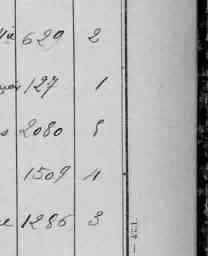 629 2
127 1
2080 5
1509 4
1286 3